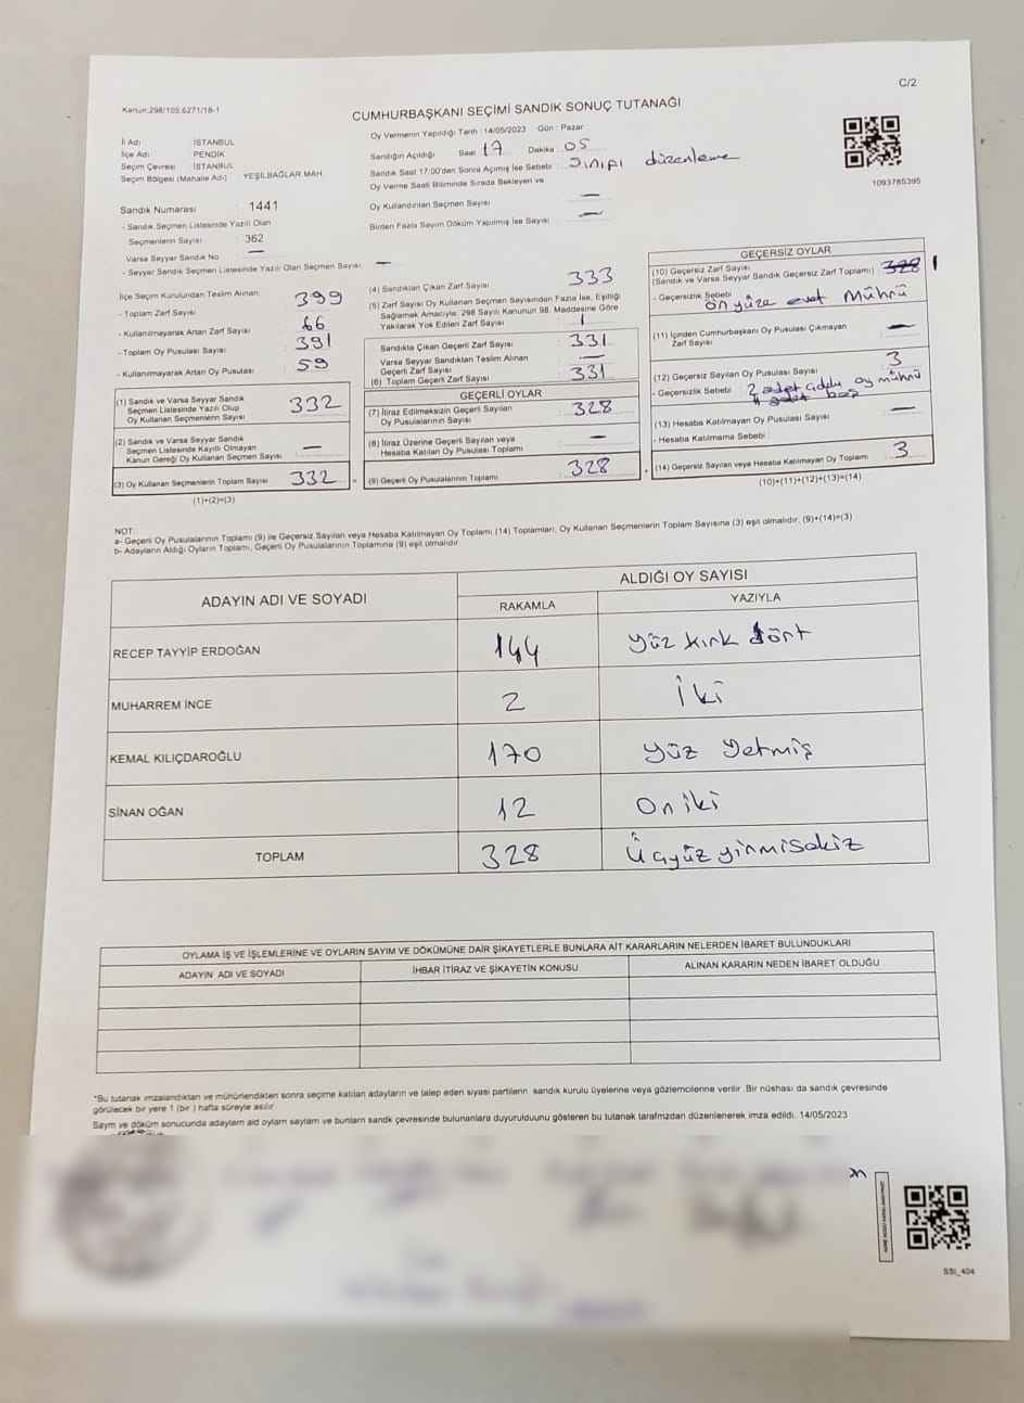 C/2
Kanun:298/105,6271/18-1
CUMHURBAŞKANI SEÇİMİ SANDIK SONUÇ TUTANAĞI
İl Adı İSTANBUL
İlçe Adı PENDİK
Seçim Çevresi İSTANBUL
Seçim Bölgesi (Mahalle Adı) YEŞİLBAĞLAR MAH.
Sandık Numarası : 1441
- Sandık Seçmen Listesinde Yazılı Olan
Seçmenlerin Sayısı : 362
Varsa Seyyar Sandık No —
- Seyyar Sandık Seçmen Listesinde Yazılı Olan Seçmen Sayısı —
Oy Vermenin Yapıldığı Tarih : 14/05/2023 Gün : Pazar
Sandığın Açıldığı Saat 17 Dakika 05
Sandık Saat 17:00'den Sonra Açılmış İse Sebebi : Sınıfı düzenleme
Oy Verme Saati Bitiminde Sırada Bekleyen ve
Oy Kullandırılan Seçmen Sayısı —
Birden Fazla Sayım Döküm Yapılmış İse Sayısı —
1093785395
İlçe Seçim Kurulundan Teslim Alınan
- Toplam Zarf Sayısı 399
- Kullanılmayarak Artan Zarf Sayısı 66
- Toplam Oy Pusulası Sayısı 391
- Kullanılmayarak Artan Oy Pusulası 59
(1) Sandık ve Varsa Seyyar Sandık
Seçmen Listesinde Yazılı Olup
Oy Kullanan Seçmenlerin Sayısı 332
(2) Sandık ve Varsa Seyyar Sandık
Seçmen Listesinde Kayıtlı Olmayan
Kanun Gereği Oy Kullanan Seçmen Sayısı —
(3) Oy Kullanan Seçmenlerin Toplam Sayısı 332
(1)+(2)=(3)
(4) Sandıktan Çıkan Zarf Sayısı 333
(5) Zarf Sayısı Oy Kullanan Seçmen Sayısından Fazla İse, Eşitliği
Sağlamak Amacıyla; 298 Sayılı Kanunun 98. Maddesine Göre
Yakılarak Yok Edilen Zarf Sayısı 1
Sandıkta Çıkan Geçerli Zarf Sayısı 331
Varsa Seyyar Sandıktan Teslim Alınan
Geçerli Zarf Sayısı —
(6) Toplam Geçerli Zarf Sayısı 331
GEÇERLİ OYLAR
(7) İtiraz Edilmeksizin Geçerli Sayılan
Oy Pusulalarının Sayısı 328
(8) İtiraz Üzerine Geçerli Sayılan veya
Hesaba Katılan Oy Pusulası Toplamı —
(9) Geçerli Oy Pusulalarının Toplamı 328
GEÇERSİZ OYLAR
(10) Geçersiz Zarf Sayısı
(Sandık ve Varsa Seyyar Sandık Geçersiz Zarf Toplamı) 328 1
- Geçersizlik Sebebi ön yüze evet mührü
(11) İçinden Cumhurbaşkanı Oy Pusulası Çıkmayan
Zarf Sayısı —
(12) Geçersiz Sayılan Oy Pusulası Sayısı 3
- Geçersizlik Sebebi 2 adet oy mührü
adet boş
(13) Hesaba Katılmayan Oy Pusulası Sayısı —
- Hesaba Katılmama Sebebi
(14) Geçersiz Sayılan veya Hesaba Katılmayan Oy Toplamı 3
(10)+(11)+(12)+(13)=(14)
NOT :
a- Geçerli Oy Pusulalarının Toplamı (9) ile Geçersiz Sayılan veya Hesaba Katılmayan Oy Toplamı (14) Toplamları, Oy Kullanan Seçmenlerin Toplam Sayısına (3) eşit olmalıdır. (9)+(14)=(3)
b- Adayların Aldığı Oyların Toplamı, Geçerli Oy Pusulalarının Toplamına (9) eşit olmalıdır.
ADAYIN ADI VE SOYADI
ALDIĞI OY SAYISI
RAKAMLA YAZIYLA
RECEP TAYYİP ERDOĞAN 144 yüz kırk dört
MUHARREM İNCE 2 iki
KEMAL KILIÇDAROĞLU 170 yüz yetmiş
SİNAN OĞAN 12 On iki
TOPLAM 328 Üçyüz yirmisekiz
OYLAMA İŞ VE İŞLEMLERİNE VE OYLARIN SAYIM VE DÖKÜMÜNE DAİR ŞİKAYETLERLE BUNLARA AİT KARARLARIN NELERDEN İBARET BULUNDUKLARI
ADAYIN ADI VE SOYADI İHBAR İTİRAZ VE ŞİKAYETİN KONUSU ALINAN KARARIN NEDEN İBARET OLDUĞU
*Bu tutanak imzalandıktan ve mühürlendikten sonra seçime katılan adayların ve talep eden siyasi partilerin sandık kurulu üyelerine veya gözlemcilerine verilir. Bir nüshası da sandık çevresinde
görülecek bir yere 1 (bir ) hafta süreyle asılır.
Sayım ve döküm sonucunda adayların aid oyların sayım ve bunların sandık çevresinde bulunanlara duyurulduğunu gösteren bu tutanak tarafımızdan düzenlenerek imza edildi. 14/05/2023
SSI_404